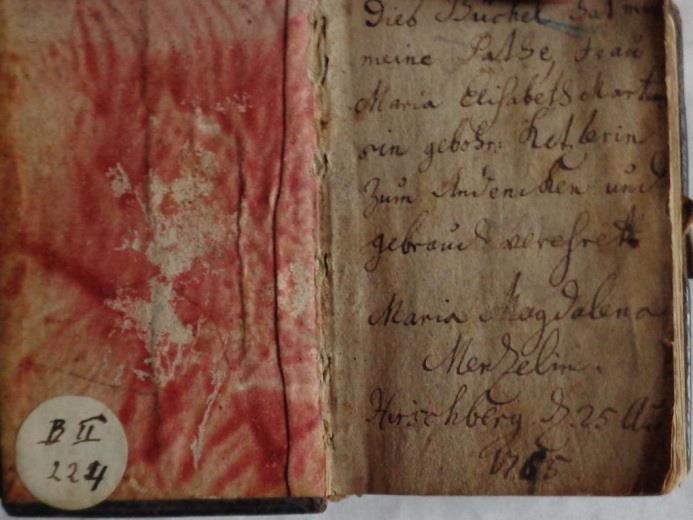 B II
224
Dies Büchel hat m
meine Pathe, Frau
Maria Elisabeth Martin
rin gebohr: Ketlerin
Zum Andencken und
gebrauch verehrett
Maria Magdalena
Menzelin.
Hirschberg d. 25 Au
1765